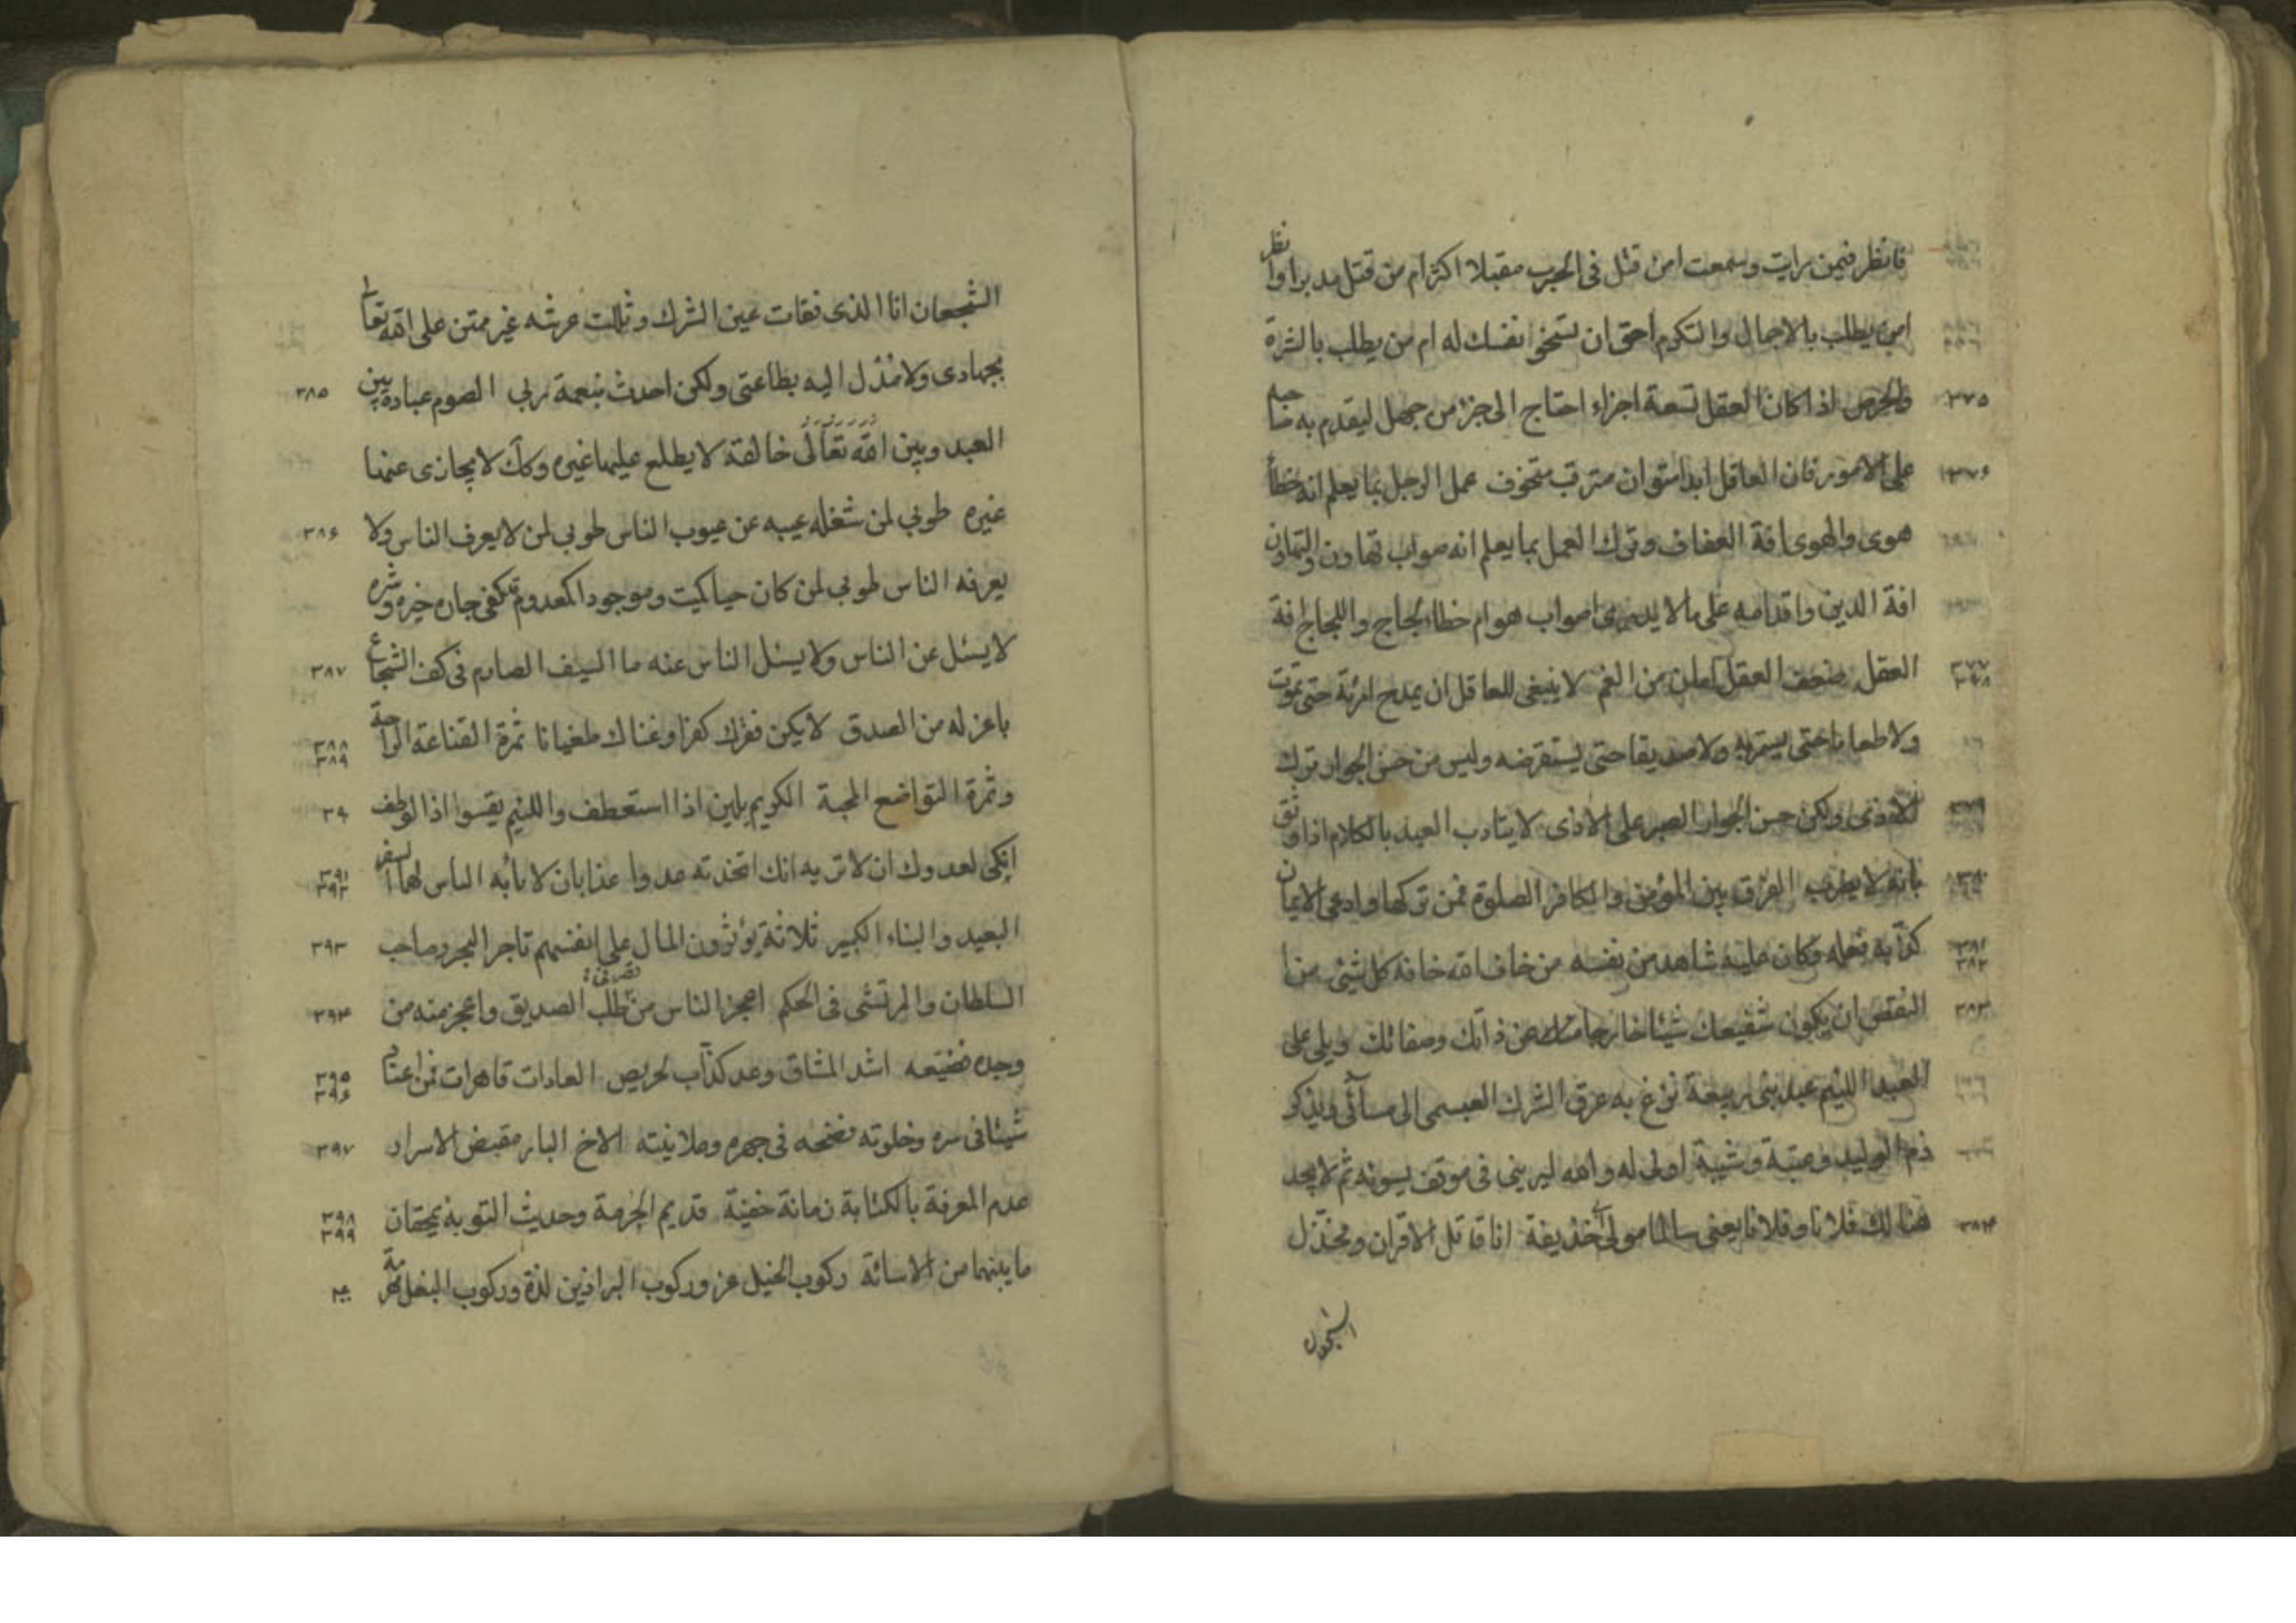 فانظر فيمن رايت وسمعت امن قتل فى الحرب مقبلا اكثر ام من قتل مدبرا وانظر
امن يطلب بالاجمال والتكرم احق ان تسخو نفسك له ام من يطلب بالشرة
٣٧٥ والحرص اذا كان العقل تسعة اجزاء احتاج الى جزء من جهل ليقدم به صاحبه
٣٧٦ على الامور فان العاقل ابدا متوان مترقب متخوف عمل الرجل بما يعلم انه خطأ
هوى والهوى افة العفاف وترك العمل بما يعلم انه صواب تهاون والتهاون
افة الدين واقدامه على ما لا يدرى اصواب هو ام خطاء لجاج واللجاج افة
٣٧٧ ٣٧٨ العقل ضعف العقل امان من الغم لا ينبغى للعاقل ان يمدح امرئة حتى تموت
ولا طعاما حتى يستمريه ولا صديقا حتى يستقرضه وليس من حسن الجوار ترك
٣٧٩ الاذى ولكن حسن الجوار الصبر على الاذى لا يتادب العبد بالكلام اذا وثق
٣٨٠ بانه لا يضرب الفرق بين المؤمن والكافر الصلوة فمن تركها وادعى الايمان
٣٨١ ٣٨٢ كذبه فعله وكان عليه شاهد من نفسه من خاف الله خافه كل شيئ من
٣٨٣ النقص ان يكون شفيعك شيئا خارجا عن ذاتك وصفاتك ويلى على
العبد اللئيم عبد بنى ربيعة نزغ به عرق الشرك العبسمى الى مسائتى ويذكر
دم الوليد وعتبة وشيبة اولى له والله ليرينى فى موقف يسوئه ثم لا يجد
٣٨٤ هنالك فلانا وفلانا يعنى سالما مولى حذيفة انا قاتل الاقران ومجندل
الشجعان
الشجعان انا الذى فقات عين الشرك وثللت عرشه غير ممتن على الله تعالى
٣٨٥ بجهادى ولا مدل اليه بطاعتى ولكن احدث بنعمة ربى الصوم عبادة بين
العبد وبين الله تعالى خالقه لا يطلع عليها غيره وكك لا يجازى عنها
٣٨٦ غيره طوبى لمن شغله عيبه عن عيوب الناس طوبى لمن لا يعرف الناس ولا
يعرفه الناس طوبى لمن كان حيا كميت وموجودا كمعدوم قد كفى جاره خيره وشره
٣٨٧ لا يسئل عن الناس ولا يسئل الناس عنه ما السيف الصارم فى كف الشجاع
٣٨٨ ٣٨٩ باعز له من الصدق لا يكن فقرك كفرا وغناك طغيانا ثمرة القناعة الراحة
٣٩٠ وثمرة التواضع المحبة الكريم يلين اذا استعطف واللئيم يقسوا اذا لوطف
٣٩١ ٣٩٢ انكى لعدوك ان لا تريه انك اتخذته عدوا عذابان لا يأبه الناس لهما السفر
٣٩٣ البعيد والبناء الكبير ثلاثة يؤثرون المال على انفسهم تاجر البحر وصاحب
٣٩٤ السلطان والمرتشى فى الحكم اعجز الناس من قصر فى طلب الصديق واعجز منه من
٣٩٥ ٣٩٦ وجده فضيعه اشد المشاق وعد كذاب لحريص العادات قاهرات فمن اعتاد
٣٩٧ شيئا فى سره وخلوته فضحه فى جهره وعلانيته الاخ البار مغيض الاسرار
٣٩٨ ٣٩٩ عدم المعرفة بالكتابة زمانة خفية قديم الحرمة وحديث التوبة يمحقان
٤٠٠ ما بينهما من الاسائة ركوب الخيل عز وركوب البراذين لذة وركوب البغل مهرمة